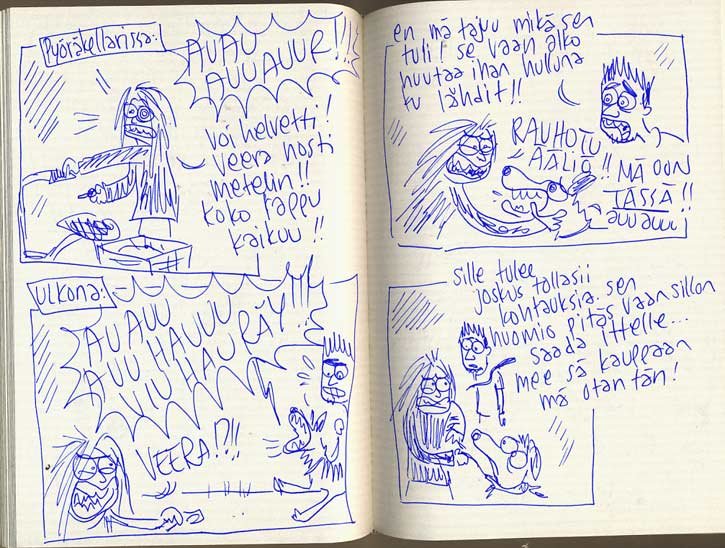 Pyöräkellarissa:
AUAU
AUUAUUR!!!
voi helvetti!
veera nosti
metelin!!
koko rappu
kaikuu!!
ULKONA:
AUAUU
AUU HAUUU
VIU HAU RÄY!!
VEERA!?!!
en mä tajuu mikä sen
tuli! se vaan alko
huutaa ihan hulluna
ku lähdit!!
RAUHOTU
ÄÄLIÖ!!
MÄ OON
TÄSSÄ!!
auu auuu
sille tulee
joskus tollasii
kohtauksia. sen
huomio pitäs vaan sillon
saada ittelle...
mee sä kauppaan
mä otan tän!